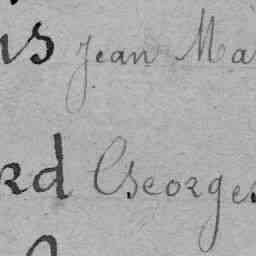 ns Jean Ma
rd Georges